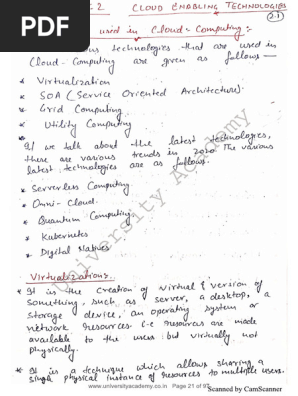 PDF
-2 CLOUD ENABLING TECHNOLOGIES
(2.1)
used in Cloud-Computing:-
technologies that are used in
Cloud-Computing are given as follows—
* Virtualization
* SOA (Service Oriented Architecture)
* Grid Computing
* Utility Computing
* If we talk about the latest technologies,
there are various trends in 2020. The various
latest technologies are as follows.
* Serverless Computing
* Omni-Cloud
* Quantum Computing
* Kubernetes
* Digital Natives
Virtualization:-
* It is the creation of virtual version of
something, such as server, a desktop, a
storage device, an operating system or
network resources i.e resources are made
available to the users but virtually not
physically.
* It is a technique which allows sharing a
single physical instance of resources to multiple users.
University Academy
www.universityacademy.co.in Page 21 of
Scanned by CamScanner